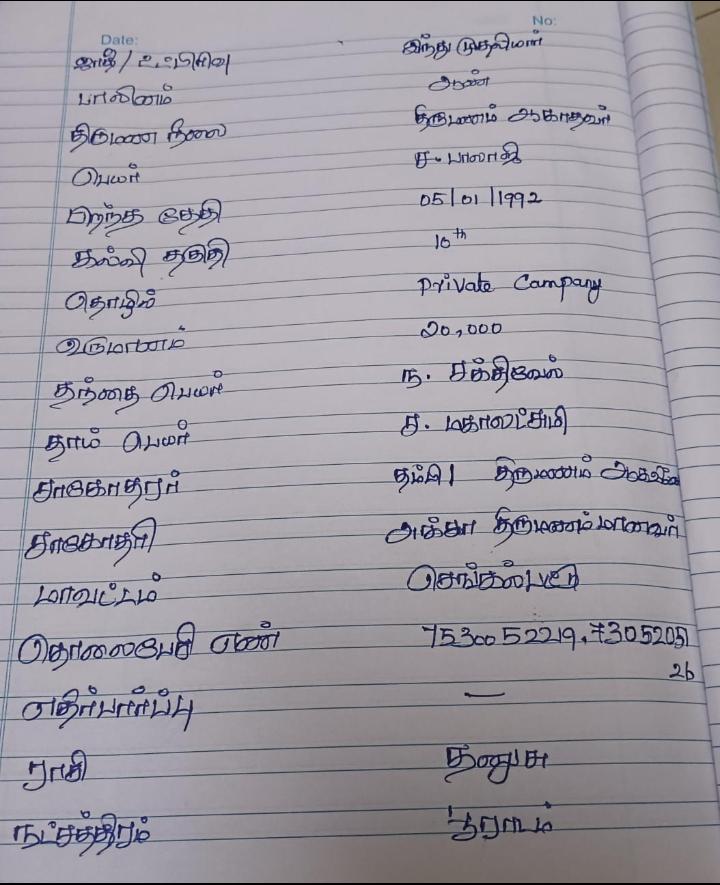 Date: No:
ஜாதி / உட்பிரிவு இந்து முதலியார்
பாலினம் ஆண்
திருமண நிலை திருமணம் ஆகாதவர்
பெயர் ச. பாலாஜி
பிறந்த தேதி 05/01/1992
கல்வி தகுதி 10th
தொழில் Private Company
வருமானம் 20,000
தந்தை பெயர் ந. சக்திவேல்
தாய் பெயர் ச. மகாலட்சுமி
சகோதரர் தம்பி 1 திருமணம்
சகோதரி அக்கா திருமணம்மானவர்
மாவட்டம் செங்கல்பட்டு
தொலைபேசி எண் 7530052219, 73052051
26
எதிர்பார்ப்பு —
ராசி தனுசு
நட்சத்திரம் பூராடம்